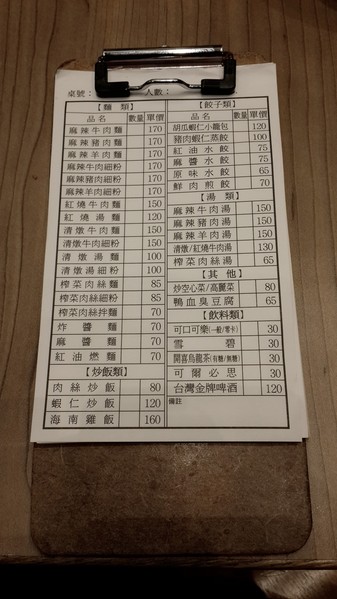 桌號： 人數：
【麵類】
品名 數量 單價
麻辣牛肉麵 170
麻辣豬肉麵 170
麻辣羊肉麵 170
麻辣牛肉細粉 170
麻辣豬肉細粉 170
麻辣羊肉細粉 170
紅燒牛肉麵 150
紅燒湯麵 120
清燉牛肉麵 150
清燉牛肉細粉 150
清燉湯麵 100
清燉湯細粉 100
榨菜肉絲麵 85
榨菜肉絲細粉 85
榨菜肉絲拌麵 70
炸醬麵 70
麻醬麵 70
紅油燃麵 70
【炒飯類】
肉絲炒飯 80
蝦仁炒飯 120
海南雞飯 160
【餃子類】
品名 數量 單價
胡瓜蝦仁小籠包 120
豬肉蝦仁蒸餃 100
紅油水餃 75
麻醬水餃 75
原味水餃 65
鮮肉煎餃 70
【湯類】
麻辣牛肉湯 150
麻辣豬肉湯 150
麻辣羊肉湯 150
清燉/紅燒牛肉湯 130
榨菜肉絲湯 65
【其他】
炒空心菜/高麗菜 80
鴨血臭豆腐 65
【飲料類】
可口可樂(一般/零卡) 30
雪碧 30
開喜烏龍茶(有糖/無糖) 30
可爾必思 30
台灣金牌啤酒 120
備註